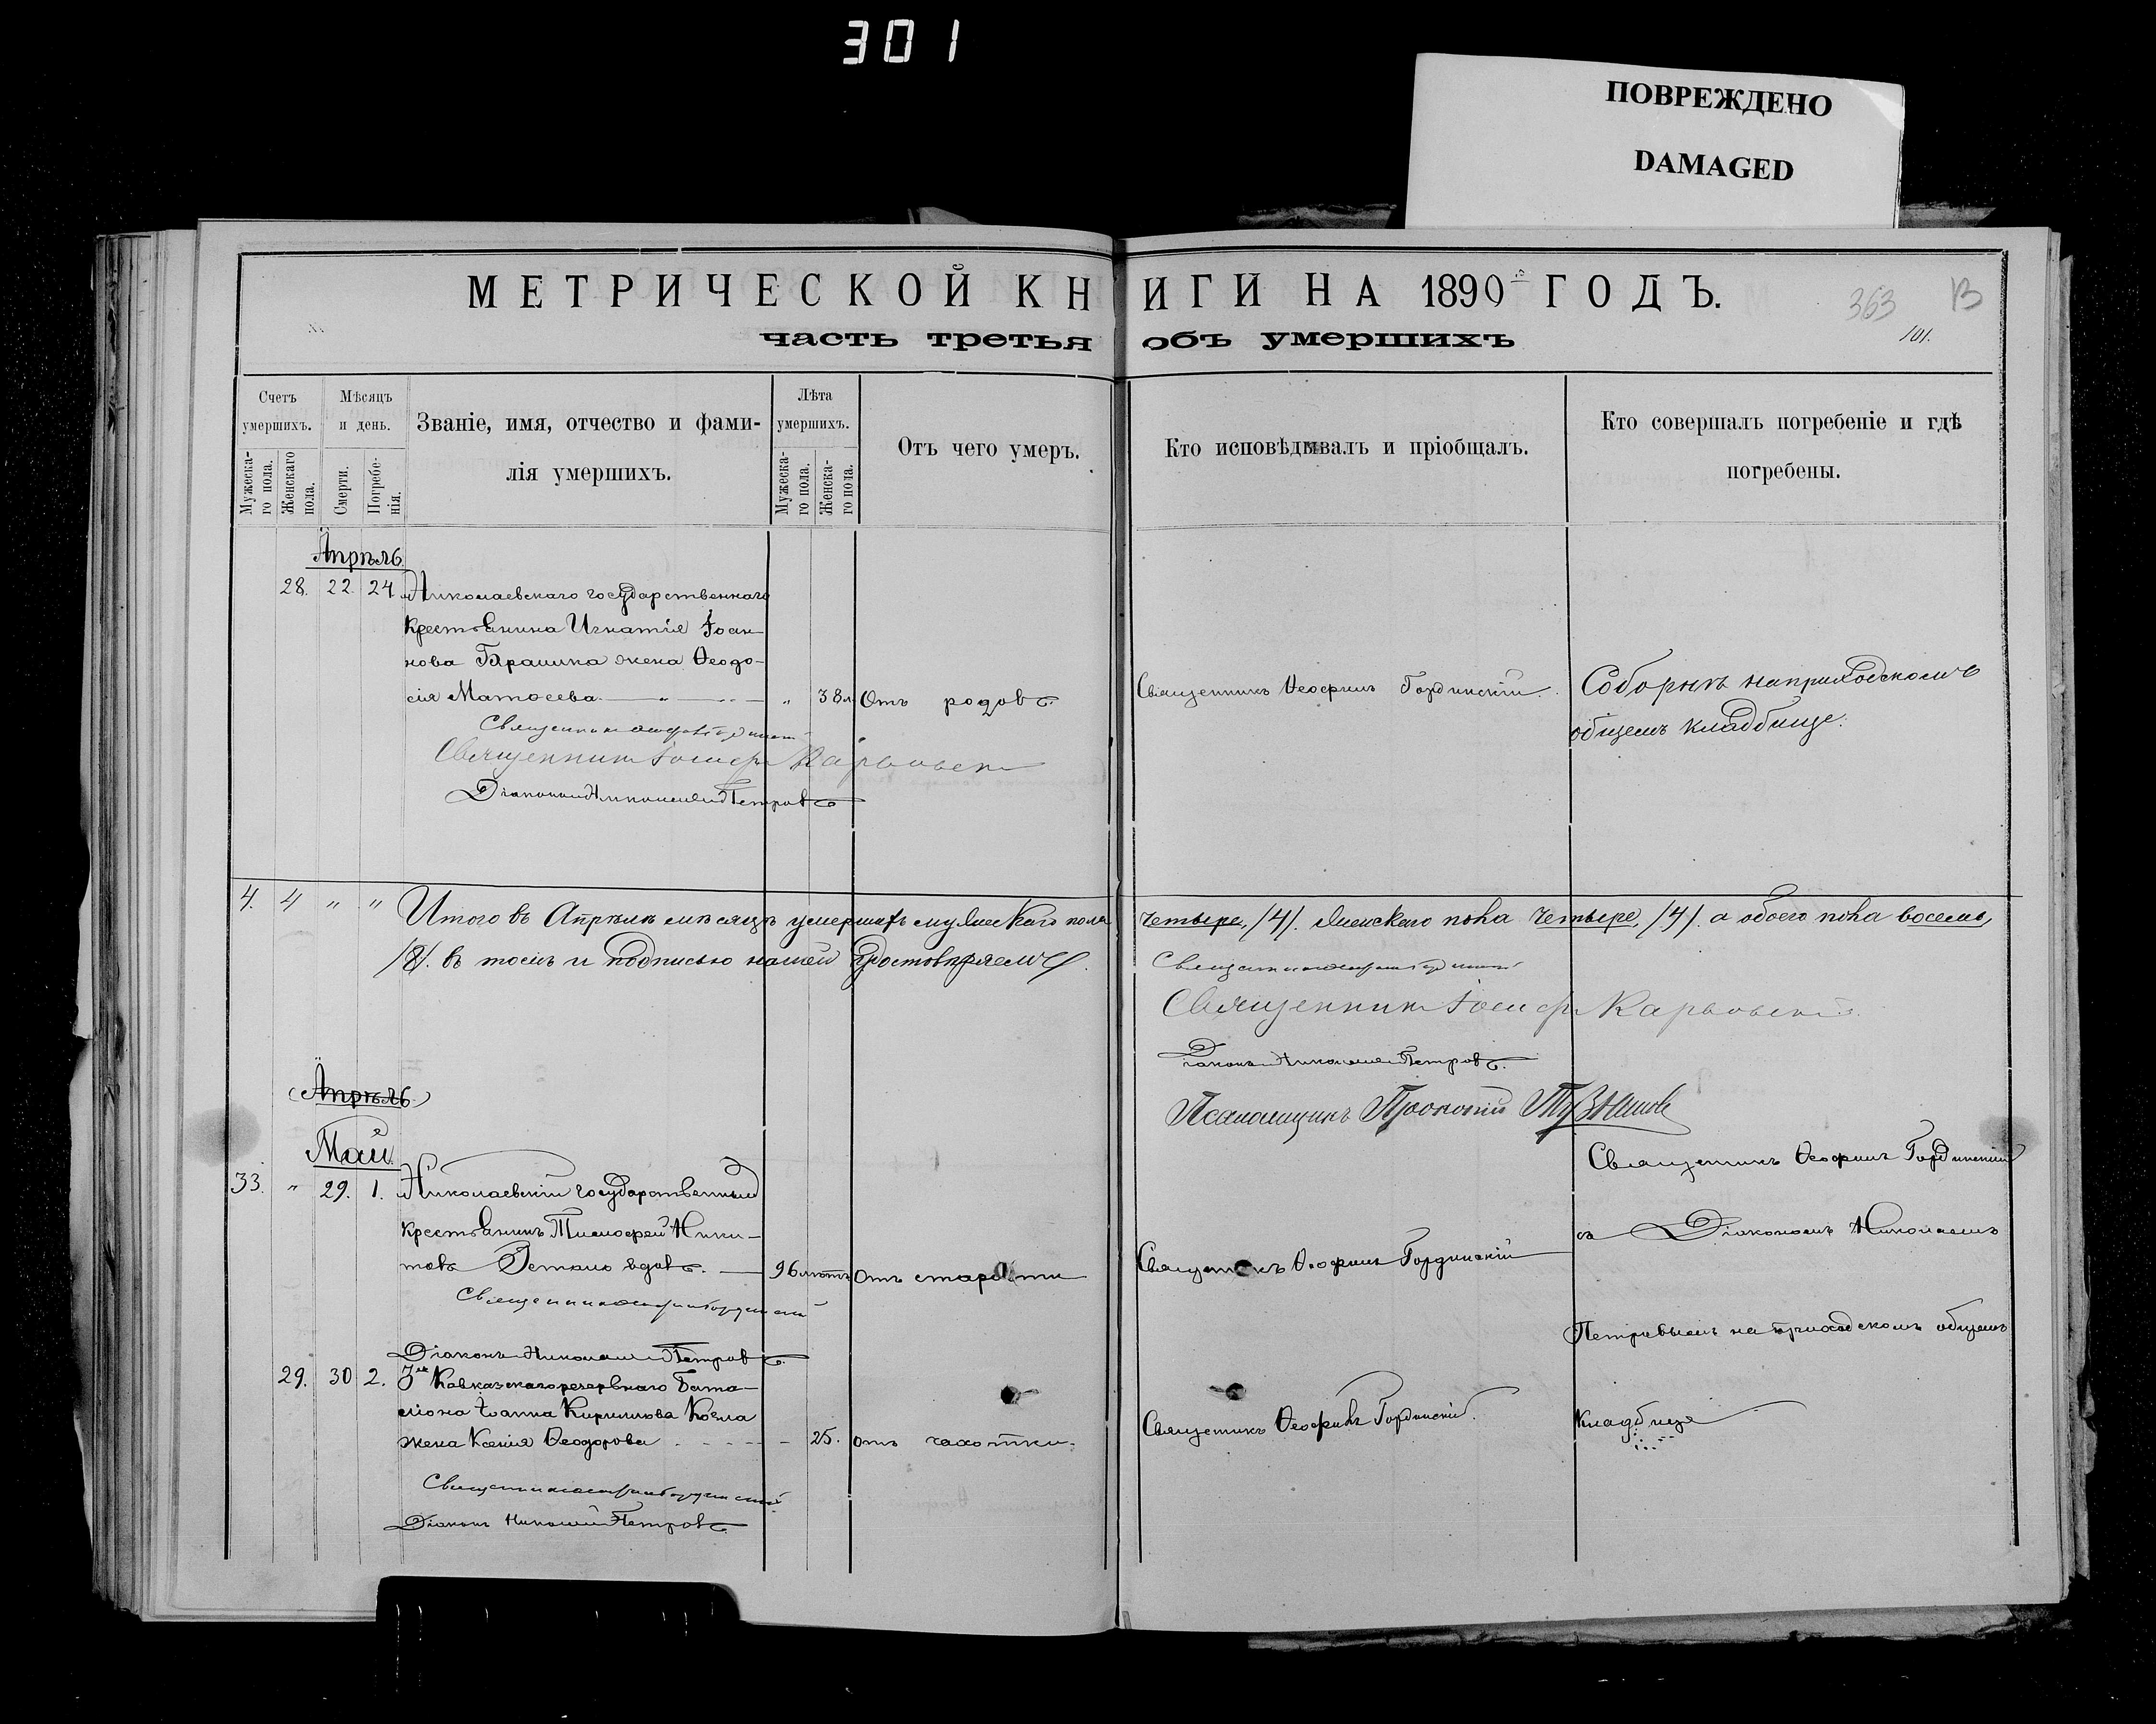 301
ПОВРЕЖДЕНО
DAMAGED
МЕТРИЧЕСКОЙ КНИГИ НА 1890 ГОДЪ.
363
часть третья объ умершихъ
101.
Счетъ умершихъ.
Мужеска-го пола.
Женскаго пола.
Мѣсяцъ и день.
Смерти.
Погребе-нія.
Званіе, имя, отчество и фами-
лія умершихъ.
Лѣта умершихъ.
Мужеска-го пола.
Женска-го пола.
Отъ чего умеръ.
Кто исповѣдывалъ и пріобщалъ.
Кто совершалъ погребеніе и гдѣ
погребены.
Апрѣль
28. 22. 24 Николаевскаго государственнаго
крестьянина Игнатія Іоан-
нова жена Ѳеодо-
сія Матѳеева " 38 л. Отъ родовъ.
Священникъ Ѳеофилъ Гординскій.
Соборнѣ на приходскомъ
общемъ кладбище.
Священникъ Ѳеофилъ Гординскій
Священникъ Іосифъ
Діаконъ Николай Петровъ
4. 4 " " Итого въ Апрѣлѣ мѣсяцѣ умершихъ мужескаго пола четыре, /4/. женскаго пола четыре, /4/. а обоего пола восемь,
/8/. въ томъ и подписью нашей удостовѣряемъ.
Священникъ Ѳеофилъ Гординскій
Священникъ Іосифъ
Діаконъ Николай Петровъ.
Псаломщикъ Прокопій
(Апрѣль)
Май
33. " 29. 1. Николаевскій государственный
крестьянинъ Тимофей Ники-
товъ вдовъ. 96 лѣтъ Отъ старости
Священникъ Ѳеофилъ Гординскій
Священникъ Ѳеофилъ Гординскій
съ Діакономъ Николаемъ
Петровымъ на приходскомъ общемъ
кладбище
Священникъ Ѳеофилъ Гординскій
Діаконъ Николай Петровъ.
29. 30 2. Кавказскаго резервнаго Бата-
ліона Іоанна Кириллова
жена Ксенія Ѳеодорова 25. отъ чахотки.
Священникъ Ѳеофилъ Гординскій.
Священникъ Ѳеофилъ Гординскій
Діаконъ Николай Петровъ.